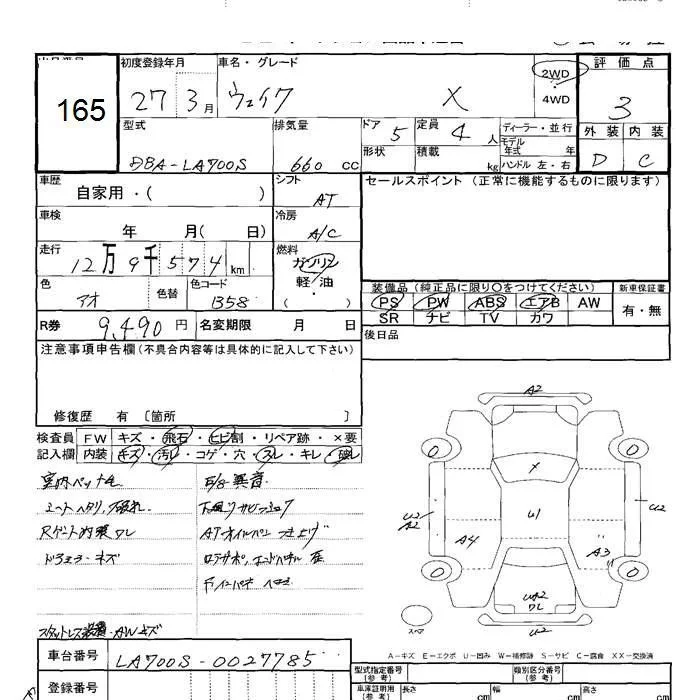 165
初度登録年月
27 3月
車名・グレード
ウェイク X
2WD
4WD
評価点
3
外装 内装
D C
型式
DBA-LA700S
排気量
660 CC
ドア 5
形状
定員 4人
積載 kg
ディーラー・並行
モデル年式 年
ハンドル 左・右
車歴
自家用・( )
シフト
AT
セールスポイント (正常に機能するものに限ります)
車検
年 月( 日)
冷房
A/C
走行
12万9千574km
燃料
ガソリン
軽・油
( )
色
アオ
色替
色コード
B58
装備品 (純正品に限り○をつけてください)
新車保証書
PS PW ABS エアB AW
SR ナビ TV カワ
有・無
R券 9,490円
名変期限 月 日
後日品
注意事項申告欄 (不具合内容等は具体的に記入して下さい)
修復歴 有 〔箇所 〕
検査員 FW キズ・飛石・ヒビ割・リペア跡・×要
記入欄 内装 キズ・汚レ・コゲ・穴・スレ・キレ・破レ
E/G 異音
シートヘタリ、
Rゲート内張 ワレ
ATオイルパン つき上げ
スタットレス装着・AWキズ
A2
X
U1
U2
A2
U2
A4
A3
UA2
ワレ
U2
スペア
A-キズ E-エクボ U-凹み W-補修跡 S-サビ C-腐食 XX-交換済
車台番号
LA700S-0027785
登録番号
型式指定番号
(参考)
類別区分番号
(参考)
車庫証明用
(参考)
長さ cm
幅 cm
高さ cm